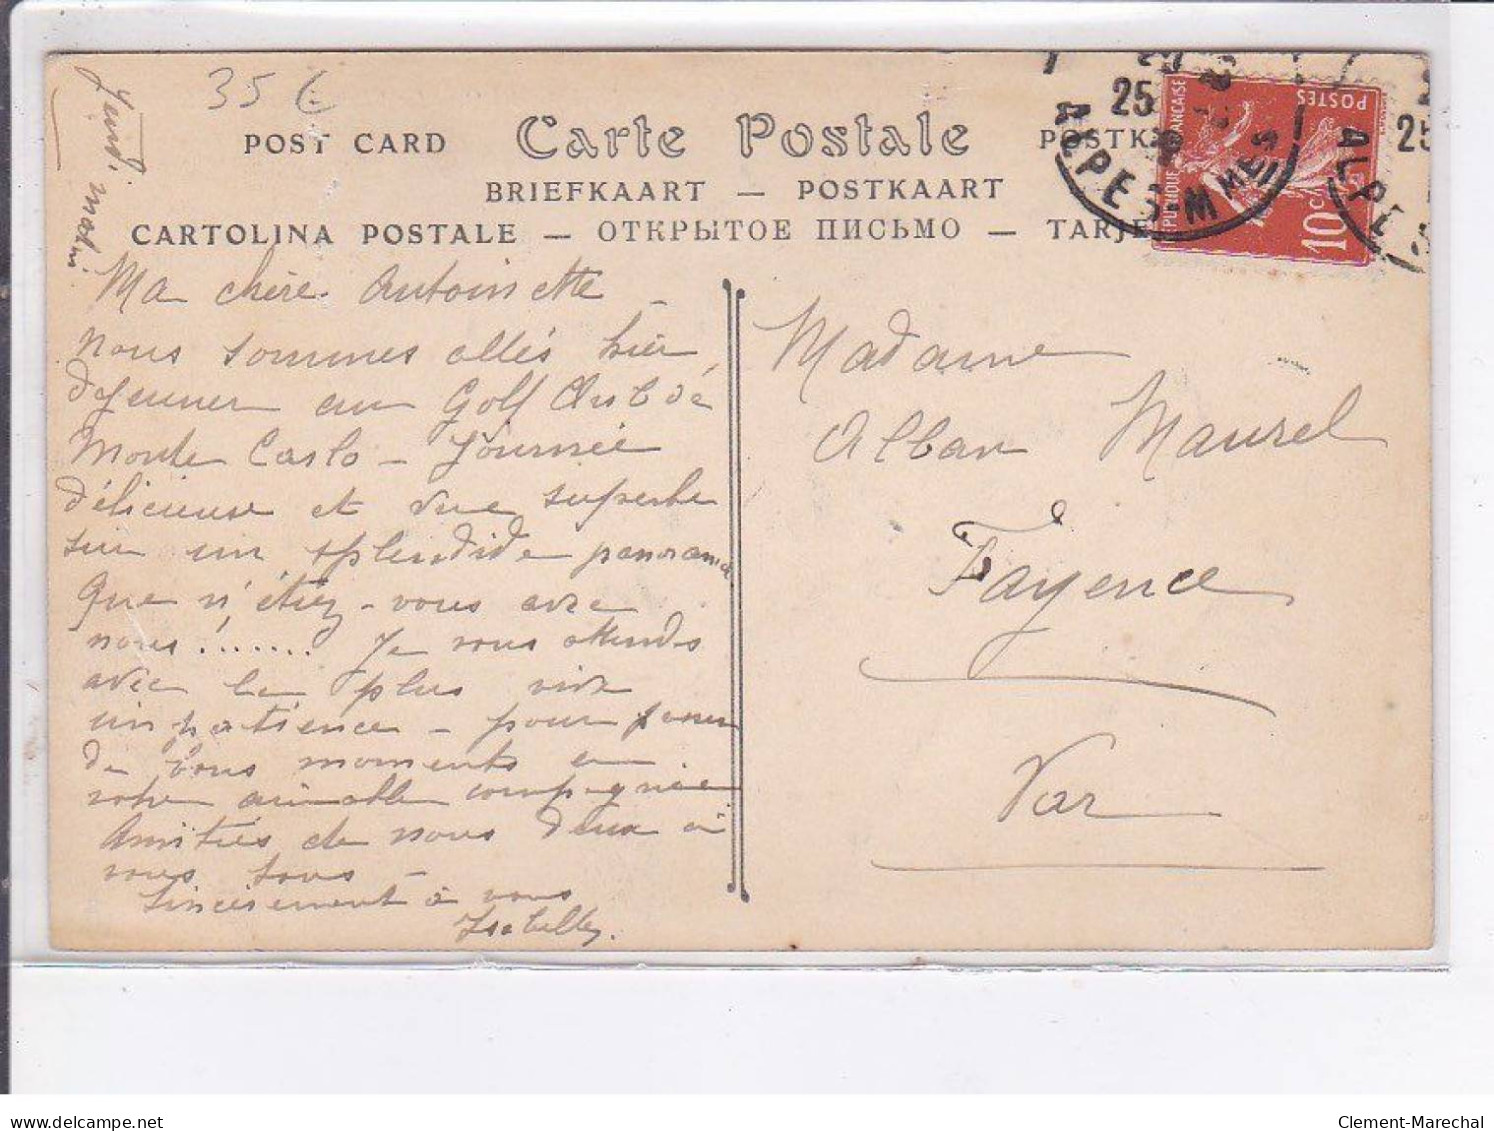 35 €
Jeudi matin
POST CARD Carte Postale POSTK
BRIEFKAART — POSTKAART
CARTOLINA POSTALE — ОТКРЫТОЕ ПИСЬМО — TARJE
25
ALPES-MMES
ALPES
25
RÉPUBLIQUE FRANÇAISE
POSTES
10 C
Ma chère Antoinette
nous sommes allés hier
déjeuner au Golf Club de
Monte Carlo - Journée
délicieuse et vue superbe
sur un splendide panorama
Que n'étiez-vous avec
nous!....... Je vous attends
avec la plus vive
impatience - pour passer
de bons moments en
votre aimable compagnie
Amitiés de nous deux à
vous tous -
Sincèrement à vous
Isabelle.
Madame
Alban Maurel
Fayence
Var
Clement-Marechal
delcampe.net